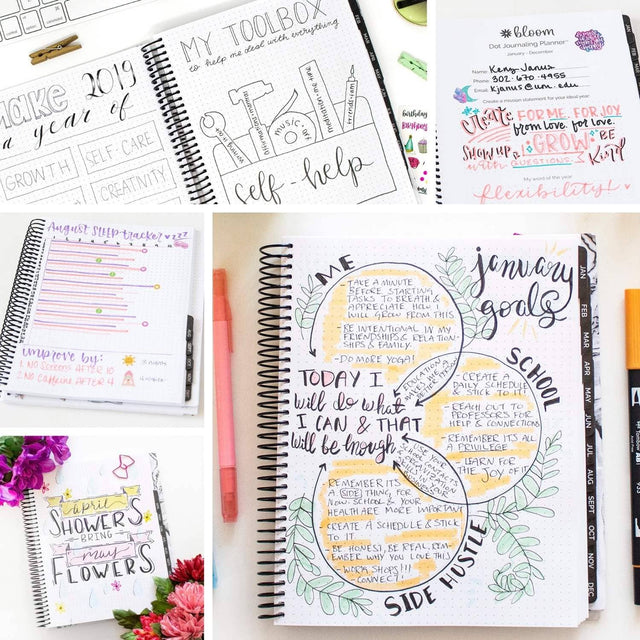 MY TOOLBOX
to help me deal with everything
make 2019
a year of
GROWTH
SELF-CARE
CREATIVITY
music: off
self-help
birthday
bloom
Dot Journaling Planner
January - December
Name: Keny Janus
Phone: 302-670-4955
Email: kjanus@um.edu
Create a mission statement for your ideal year
Create FOR ME. FOR JOY.
from love. for love.
SHOW UP & GROW. BE
with QUESTIONS. Kind
My word of the year
flexibility!
August SLEEP tracker
Improve by:
1. NO SCREENS AFTER 10
2. NO CAFFEINE AFTER 4
april
SHOWERS
BRING
may
FLOWERS
january
goals
ME
- TAKE A MINUTE
BEFORE STARTING
TASKS TO BREATHE &
APPRECIATE HOW I
WILL GROW FROM THIS
- BE INTENTIONAL IN MY
FRIENDSHIPS & RELATION-
SHIPS & FAMILY.
- DO MORE YOGA!
TODAY I
will do what
I CAN & THAT
will be enough
SCHOOL
- CREATE A
DAILY SCHEDULE
& STICK TO IT
- REACH OUT TO
PROFESSORS FOR
HELP & CONNECTIONS
- REMEMBER ITS ALL
A PRIVILEGE
- LEARN FOR
THE JOY OF IT
- REMEMBER IT'S
A SIDE THING, FOR
NOW - SCHOOL & YOUR
HEALTH ARE MORE IMPORTANT
- CREATE A SCHEDULE & STICK
TO IT
- BE HONEST, BE REAL, REM-
EMBER WHY YOU LOVE THIS
- WORK SHOPS!!!
- CONNECT!
SIDE HUSTLE
JAN
FEB
MAR
APR
MAY
JUN
JUL
AUG
SEPT
OCT
NOV
DEC